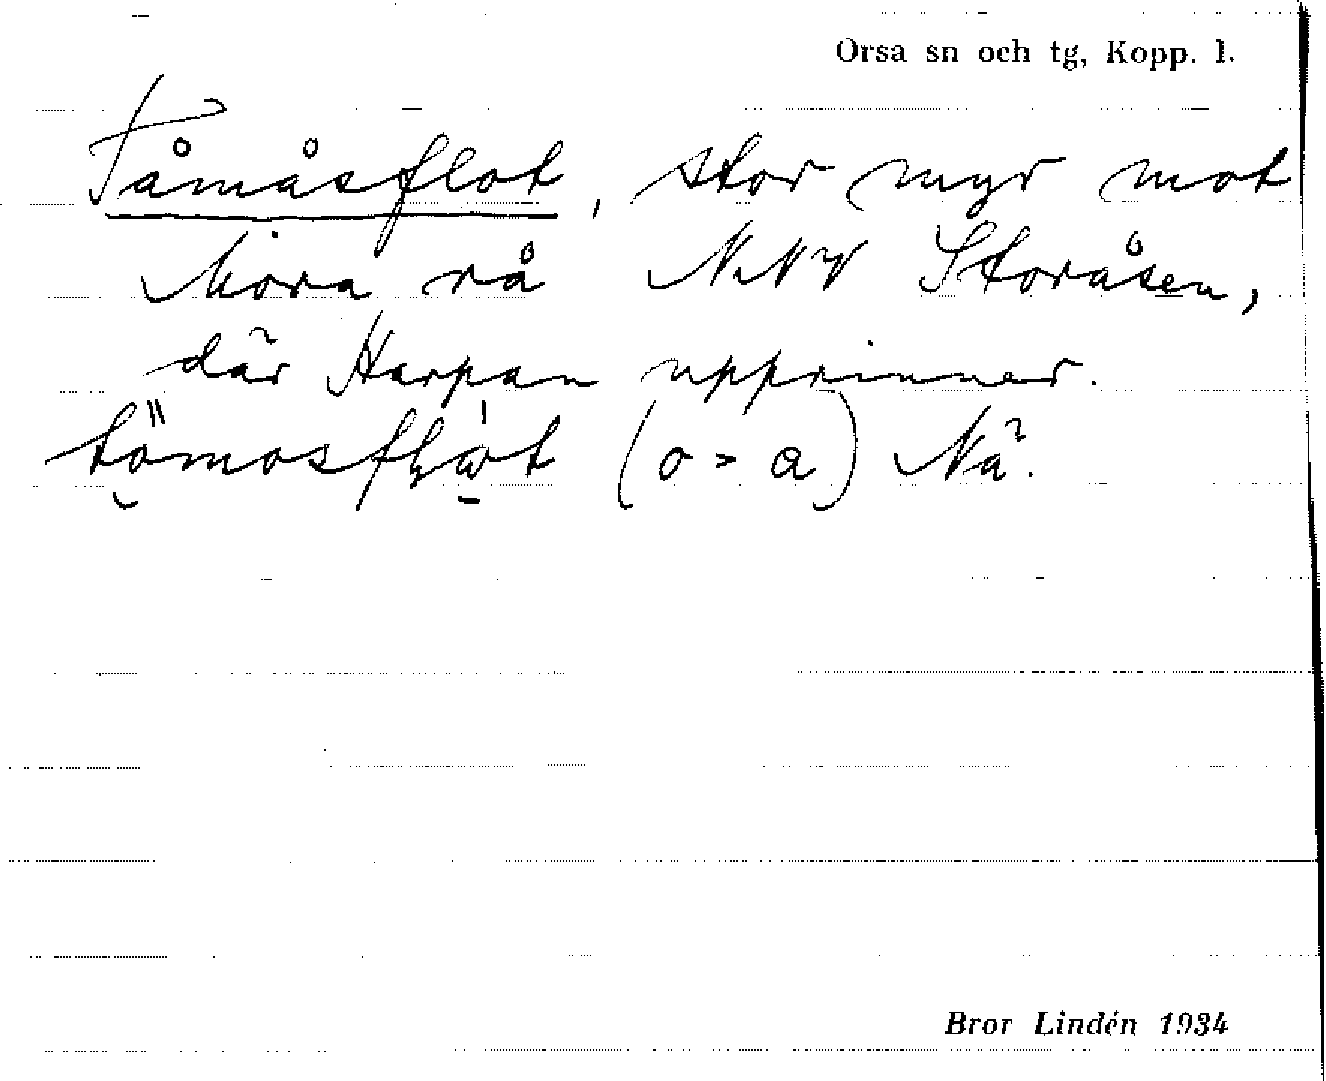 Orsa sn och tg, Kopp. l.
Tåmåsflot, stor myr mot
Mora rå NNV Storåsen,
där Harpan upprinner.
(o > a) Nä.
Bror Lindén 1934